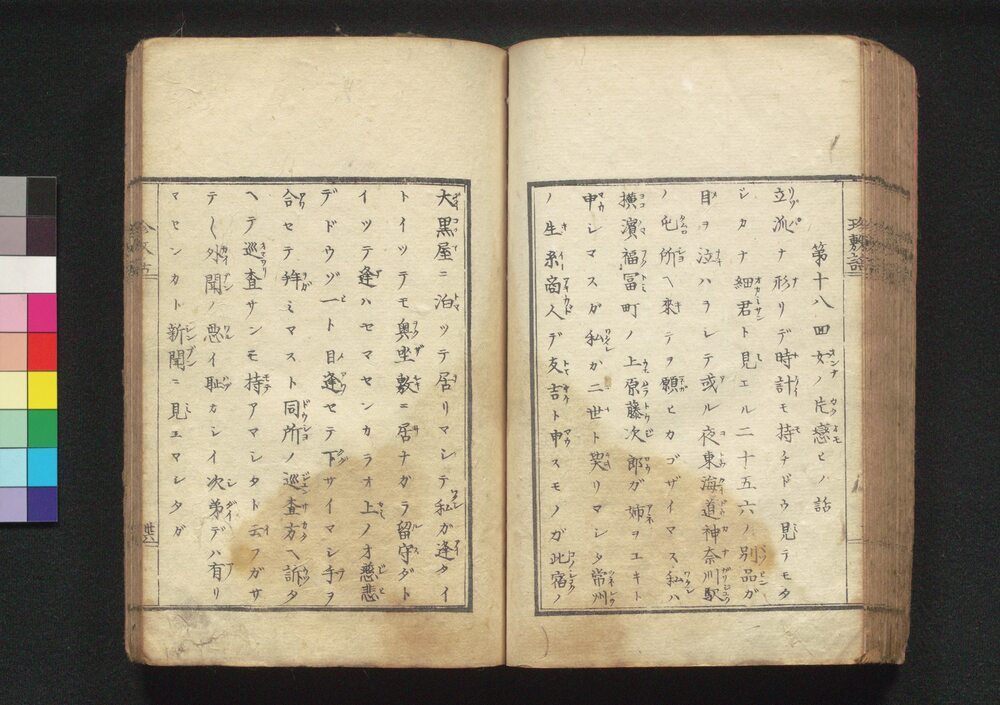 第十八四 女ノ片戀ヒノ話
立派ナ形リデ時計モ持チドウ見テモタ
シカナ細君ト見エル二十五六ノ別品ガ
目ヲ泣ハラシテ或ル夜東海道神奈川駅
ノ屯所ヘ來テヲ願ヒカゴザイマス私ハ
横濱福冨町ノ上原藤次郎ガ姉ヲエキト
申シマスガ私カ二世ト契リマシタ常州
ノ生糸商人デ友吉ト申スモノガ此宿ノ
大黒屋ニ泊ツテ居リマシテ私カ逢タイ
トイツテモ奥坐敷ニ居ナガラ留守ダト
イツテ逢ハセマセンカラオ上ノオ慈悲
デドウゾ一ト目逢セテ下サイマシ手ヲ
合セテ拝ミマスト同所ノ巡査方ヘ訴タ
ヘテ巡査サンモ持アマシタト云フガサ
テ〳〵外聞ノ悪イ恥カシイ次第デハ有リ
マセンカト新聞ニ見エマシタガ